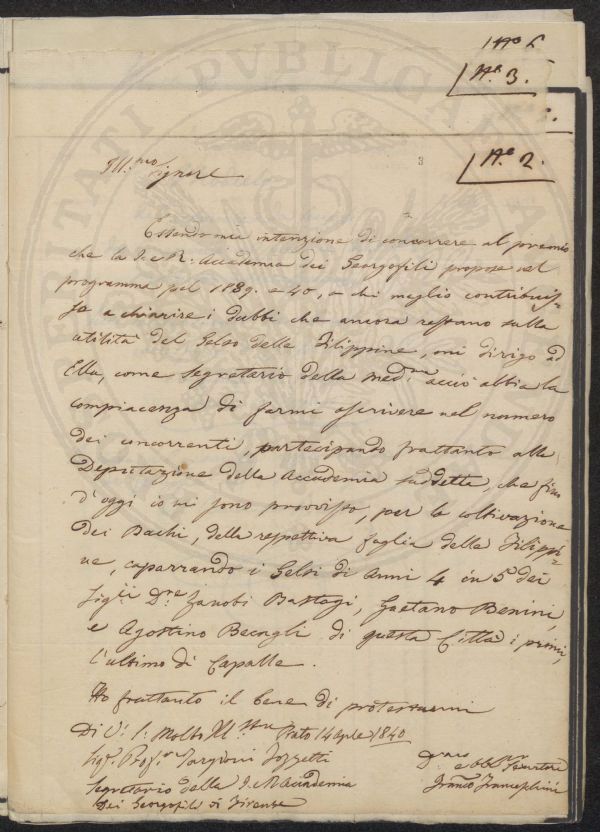 N.o 3.
N.o 2.
3
Ill.mo Signore
Essendo mia intenzione di concorrere al premio
che la I. e R. Accademia dei Georgofili propose nel
programma pel 1839. e 40, a chi meglio contribuis-
se a chiarire i dubbi che ancora restano sulla
utilità del Gelso delle Filippine, mi dirigo ad
Ella, come Segretario della med.ma acciò abbia la
compiacenza di farmi ascrivere nel numero
dei concorrenti, partecipando frattanto alla
Deputazione della Accademia suddetta, che fin
d'oggi io mi sono provvisto, per la coltivazione
dei Bachi, della respettiva foglia delle Filippi-
ne, caparrando i Gelsi di Anni 4 in 5 dei
Sig.ri D.re Zanobi Bastogi, Gaetano Benini,
e Agostino Becagli di questa Città i primi,
l'ultimo di Capalle.
Ho frattanto il bene di protestarmi
Di V. S. Molto Ill.stre Prato 14 Aprle 1840
Sig.r Prof.r Targioni Tozzetti
Segretario della I. R. Accademia
dei Georgofili di Firenze
D.mo e Obb. Servitore
Franco Franceschini